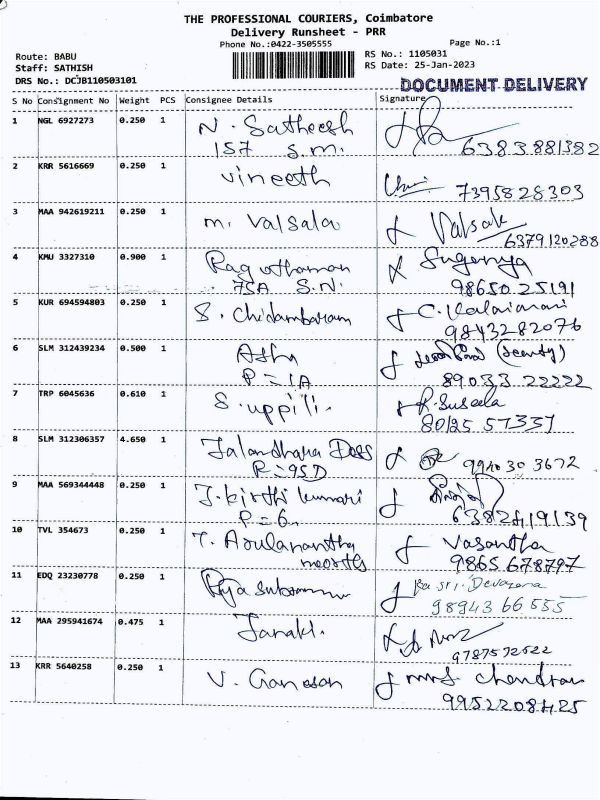 THE PROFESSIONAL COURIERS, Coimbatore
Delivery Runsheet - PRR
Phone No.:0422-3505555
Page No.:1
Route: BABU
RS No.: 1105031
Staff: SATHISH
RS Date: 25-Jan-2023
DRS No.: DCJB110503101
DOCUMENT DELIVERY
S No Consignment No Weight PCS Consignee Details Signature
1 NGL 6927273 0.250 1 N. Satheesh
157 S.M. 6383881382
2 KRR 5616669 0.250 1 Vineeth 7395828303
3 MAA 942619211 0.250 1 M. Valsala Valsala
6379120288
4 KMU 3327310 0.900 1 Raguthaman Suganya
75A S.N. 98650 25191
5 KUR 694594803 0.250 1 S. Chidambaram C. Kalaimani
9843282076
6 SLM 312439234 0.500 1 Asha (Security)
P = 1A 89033 22222
7 TRP 6045636 0.610 1 S. uppili. R. Suseela
80125 57337
8 SLM 312306357 4.650 1 Jalandhara Doss
P = 95D 99403 03672
9 MAA 569344448 0.250 1 J. kirthi kumari
P = 6 6382419139
10 TVL 354673 0.250 1 T. Arulanantha Vasantha
moorthy 9865 678797
11 EDQ 23230778 0.250 1 Sri. Devasena
98943 66 555
12 MAA 295941674 0.475 1 Janaki.
9787572522
13 KRR 5640258 0.250 1 V. Ganesan Mrs. Chandran
9952208425